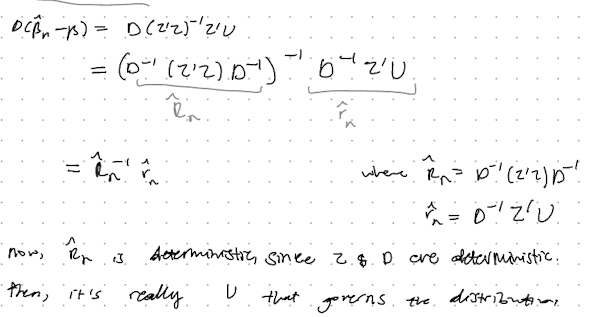 D(β̂ₙ-β) = D(Z'Z)⁻¹Z'U
= (D⁻¹(Z'Z)D⁻¹)⁻¹ D⁻¹Z'U
R̂ₙ r̂ₙ
= R̂ₙ⁻¹ r̂ₙ where R̂ₙ = D⁻¹(Z'Z)D⁻¹
r̂ₙ = D⁻¹Z'U
now, R̂ₙ is deterministic, since Z & D are deterministic.
then, it's really U that governs the distribution,